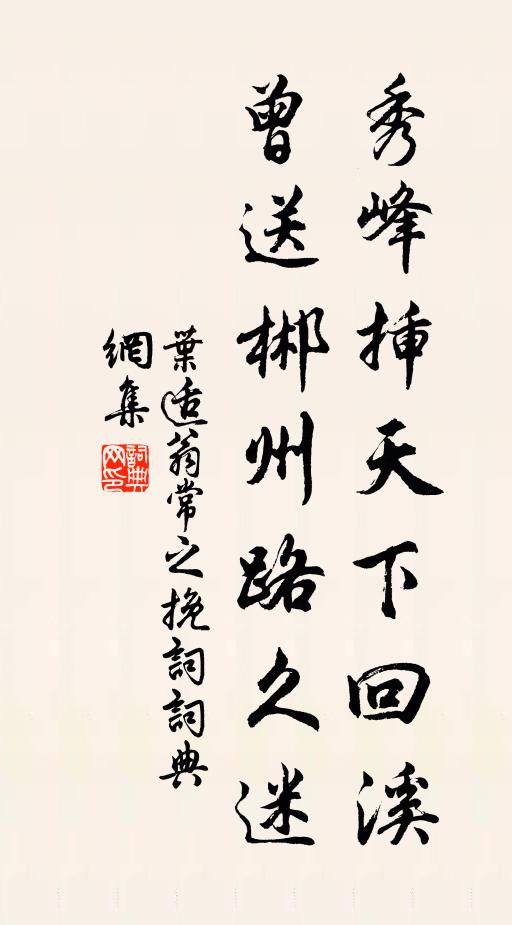 秀峰揷天下回溪
曾送郴州路久迷
葉適翁常之挽詞詞典
網集
詞典網印